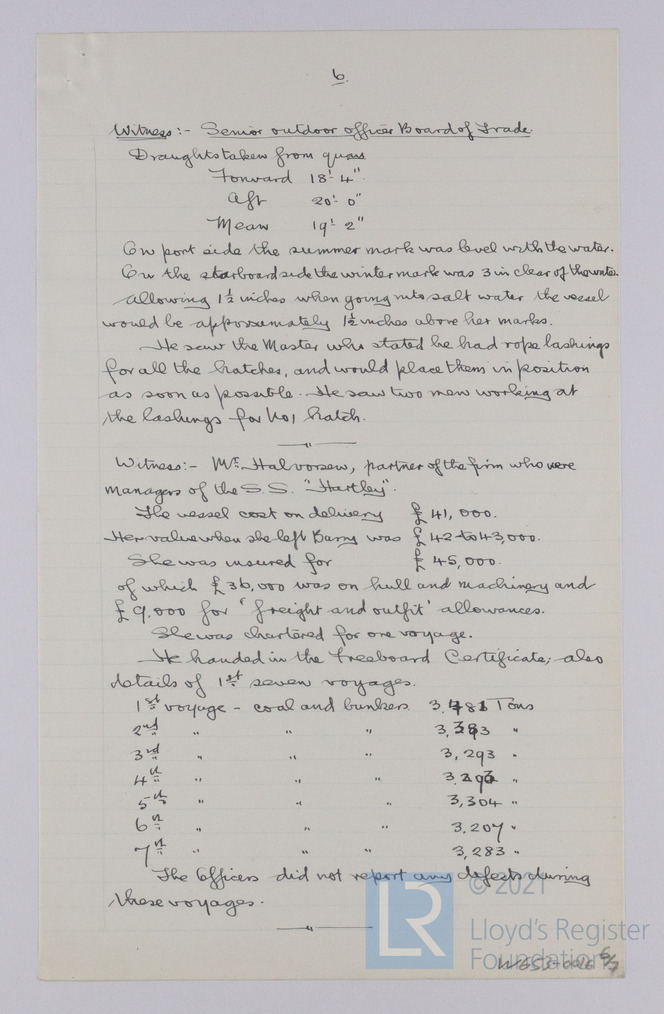 6.
Witness:- Senior outdoor officer Board of Trade.
Draughts taken from quay
Forward 18'- 4"
Aft 20'- 0"
Mean 19'- 2"
On port side the summer mark was level with the water.
On the starboard side the winter mark was 3 in clear of the water.
Allowing 1½ inches when going into salt water the vessel
would be approximately 1½ inches above her marks.
He saw the Master who stated he had rope lashings
for all the hatches, and would place them in position
as soon as possible. He saw two men working at
the lashings for No 1 hatch.
Witness:- Mr. Halvorsen, partner of the firm who were
managers of the S.S. "Hartley".
The vessel cost on delivery £41,000.
Her value when she left Barry was £42 to 43,000.
She was insured for £45,000.
of which £36,000 was on hull and machinery and
£9,000 for 'freight and outfit' allowances.
She was chartered for one voyage.
He handed in the Freeboard Certificate; also
details of 1st seven voyages.
1st voyage - coal and bunkers Tons
2nd " " "  "
3rd " " " 3,293 "
4th " " "  "
5th " " " 3,304 "
6th " " " 3,207 "
7th " " " 3,283 "
The Officers did not report any defects during
these voyages.
© 2021
LR
Lloyd's Register
Foundation